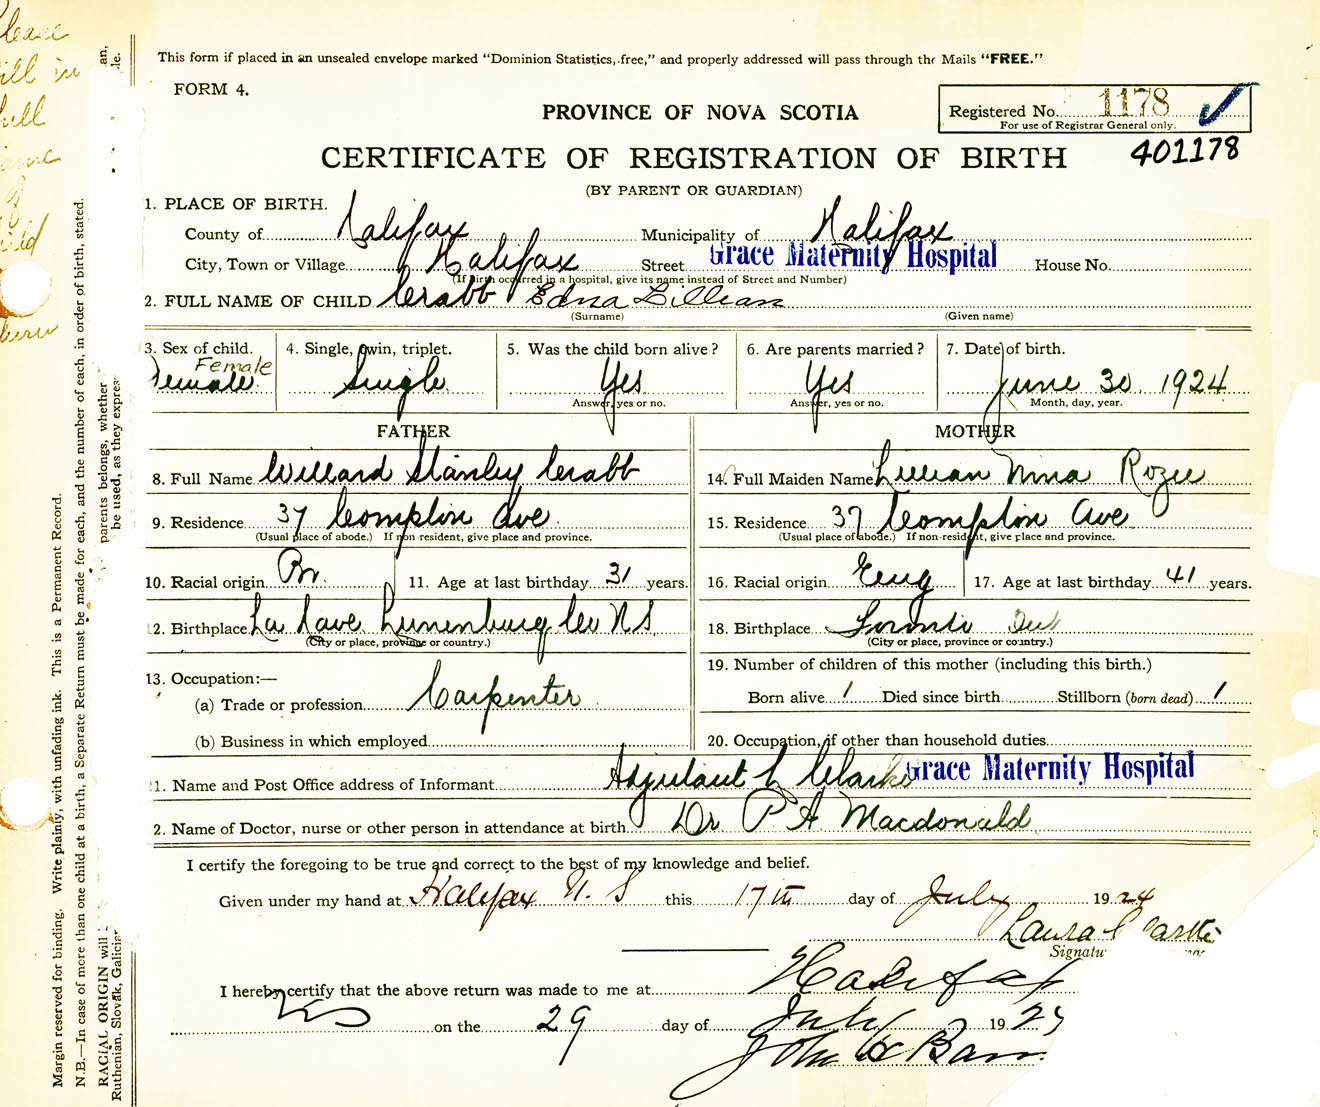 This form if placed in an unsealed envelope marked “Dominion Statistics, free,” and properly addressed will pass through the Mails “FREE.”
FORM 4.
PROVINCE OF NOVA SCOTIA
Registered No. 1178
For use of Registrar General only.
401178
CERTIFICATE OF REGISTRATION OF BIRTH
(BY PARENT OR GUARDIAN)
1. PLACE OF BIRTH.
County of Halifax Municipality of Halifax
City, Town or Village Halifax Street Grace Maternity Hospital House No.
(If birth occurred in a hospital, give its name instead of Street and Number)
2. FULL NAME OF CHILD Crabb Edna Lillian
(Surname) (Given name)
3. Sex of child. 4. Single, twin, triplet. 5. Was the child born alive? 6. Are parents married? 7. Date of birth.
Female
Female Single Yes Yes June 30 1924
Answer, yes or no. Answer, yes or no. Month, day, year.
FATHER
8. Full Name Willard Stanley Crabb
9. Residence 37 Compton Ave
(Usual place of abode.) If non-resident, give place and province.
10. Racial origin Br. 11. Age at last birthday 31 years.
12. Birthplace La Have Lunenburg Co N S
(City or place, province or country.)
13. Occupation:—
(a) Trade or profession Carpenter
(b) Business in which employed
MOTHER
14. Full Maiden Name Lillian Nina Rozee
15. Residence 37 Compton Ave
(Usual place of abode.) If non-resident, give place and province.
16. Racial origin Eng 17. Age at last birthday 41 years.
18. Birthplace Toronto Ont
(City or place, province or country.)
19. Number of children of this mother (including this birth.)
Born alive 1 Died since birth Stillborn (born dead) 1
20. Occupation, if other than household duties
1. Name and Post Office address of Informant Adjutant L Clarke Grace Maternity Hospital
2. Name of Doctor, nurse or other person in attendance at birth. Dr P A Macdonald
I certify the foregoing to be true and correct to the best of my knowledge and belief.
Given under my hand at Halifax N. S this 17th day of July 1924
Laura C
Signatu
I hereby certify that the above return was made to me at Halifax
on the 29 day of July 192
John
Please
fill in
full
name
of
child
Margin reserved for binding. Write plainly, with unfading ink. This is a Permanent Record.
N.B.—In case of more than one child at a birth, a Separate Return must be made for each, and the number of each, in order of birth, stated.
RACIAL ORIGIN will parents belongs, whether
Ruthenian, Slovak, Galician be used, as they expres